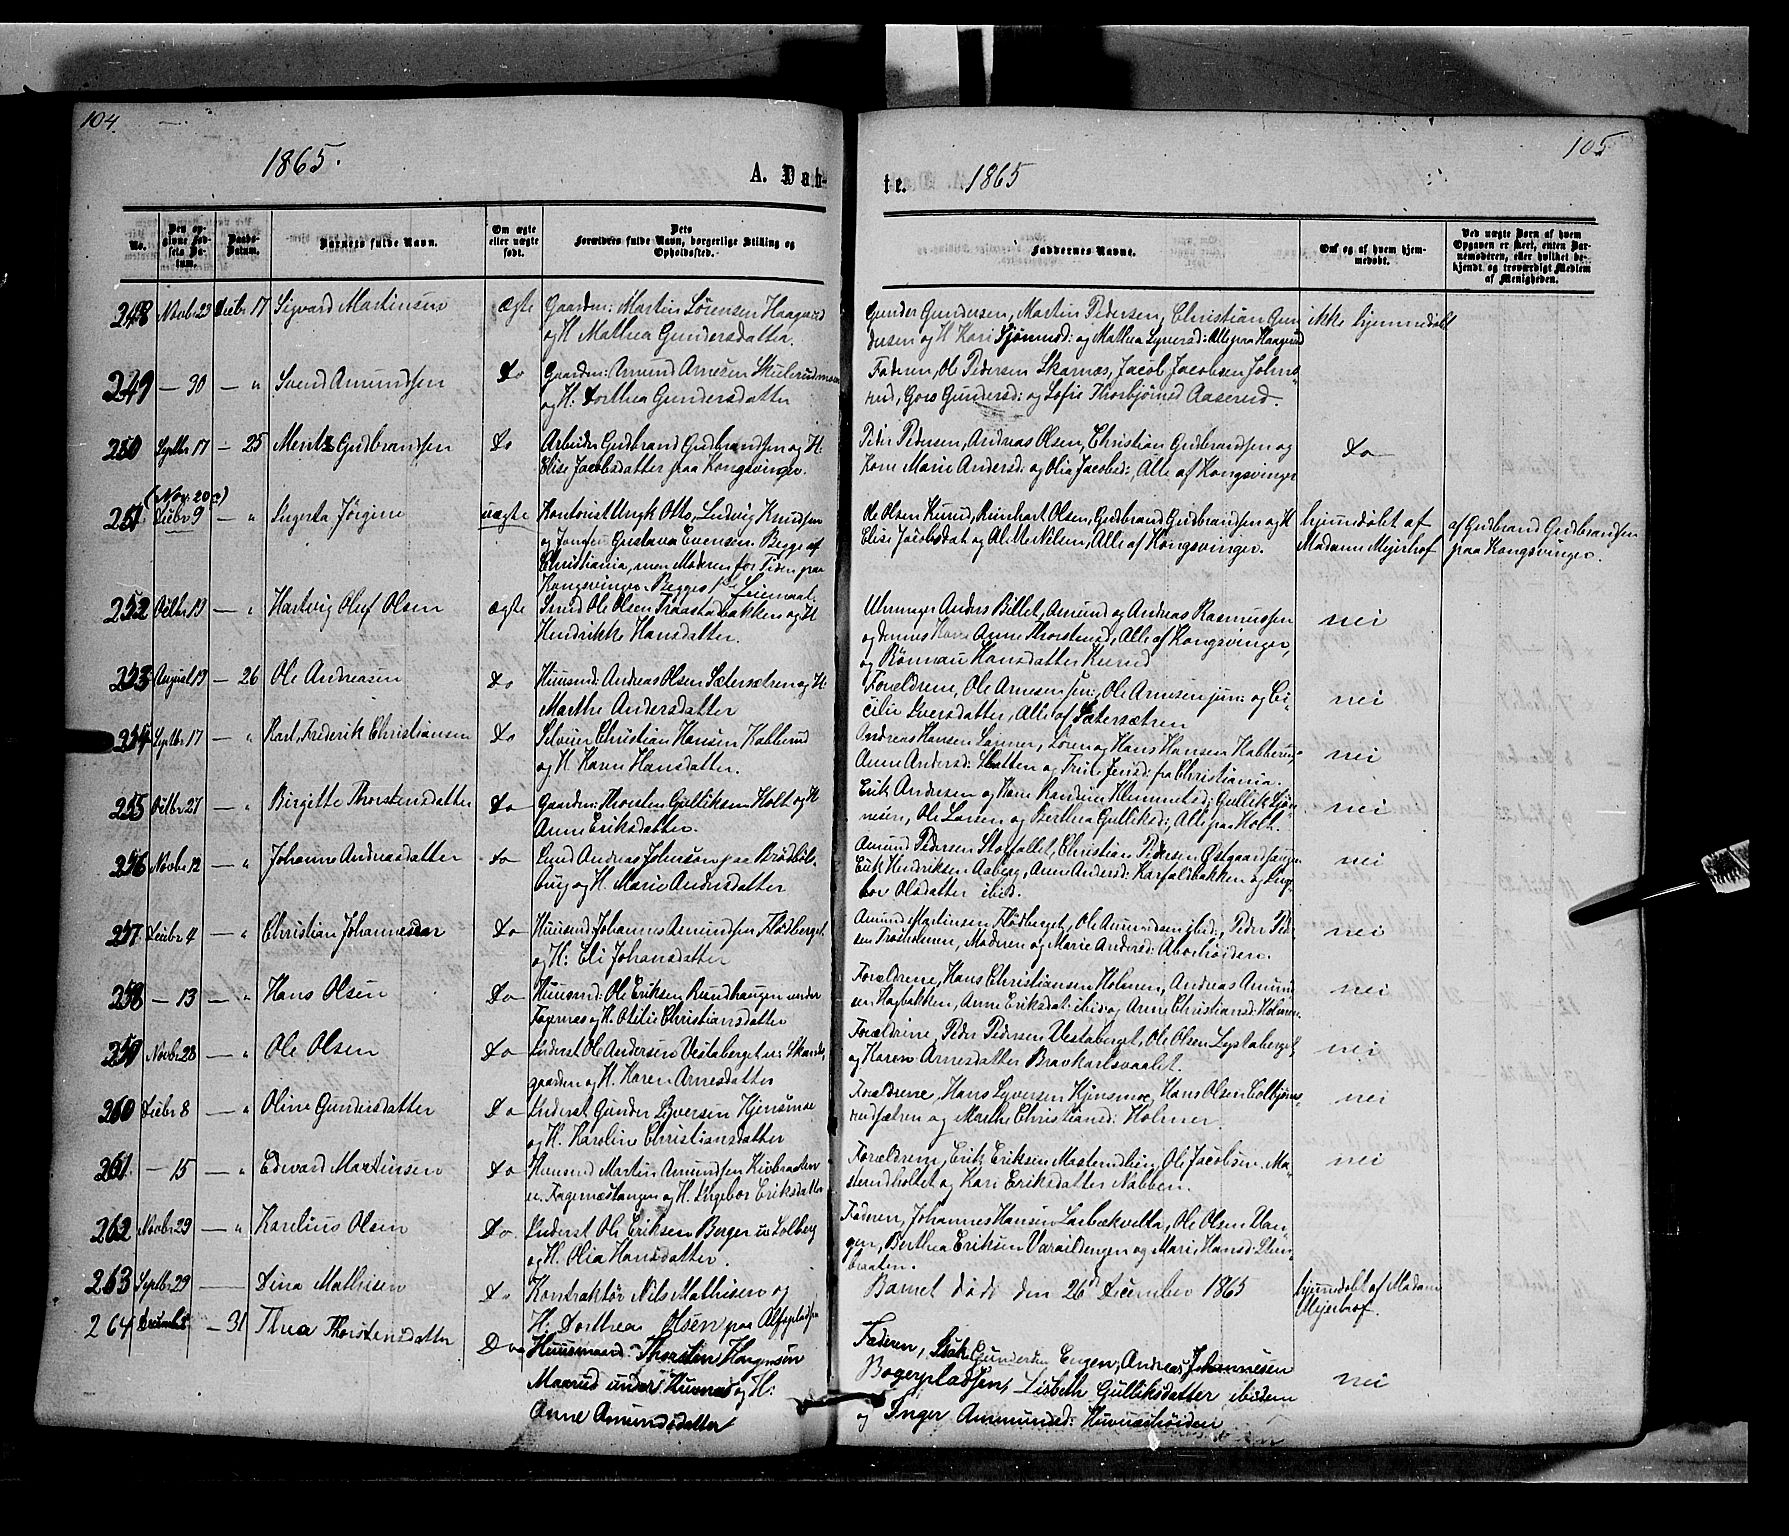 104.
105
1865.
A. Dab-
te.
1865
No.
Den op-
givne Fød-
sels Da-
tum.
Daabs-
Datum.
Barnets fulde Navn.
Om ægte
eller uægte
født.
Dets
Forældres fulde Navn, borgerlige Stilling og
Opholdssted.
Faddernes Navne.
Om og af hvem hjem-
medøbt.
Ved uægte Børn af hvem
Opgaven er skeet, enten Bar-
nemoderen, eller hvilket be-
kjendt og troværdigt Medlem
af Menigheden.
248 Novbr 23 Decbr 17 Sigvard Martinsen ægte Gaardm: Martin Sørensen Haagerud
og H Mathea Gundersdatter.
Gunder Gundersen, Martin Pedersen, Christian Gun
dersen og H Kari og Mathea Syversd: Alle paa Haagerud
ikke hjemmedøbt
249 — 30 — " Svend Amundsen Do Gaardm: Amund Arnesen
og H: Dorthea Gundersdatter
Faderen, Ole Pedersen Skarnæs, Jacob Jacobsen Johns
rud, Goro Gundersd: og Sofie Thorbjørnsd Aaserud.
250 Septbr 17 — 25 Mentz Gudbrandsen Do Arbeider Gudbrand Gudbrandsen og H.
Elise Jacobsdatter paa Kongsvinger.
Peder Pedersen, Andreas Olsen, Christian Gudbrandsen og
Kone Marie Andersd: og Olia Jacobsd: Alle af Kongsvinger
Do
(Nov. 20 )
251 Decbr 9 — " Ingerta Jørgine uægte Kontorist Otto Ludvig Knudsen
og Gustava Evensen. Begge af
Christiania, men Moderen for Tiden paa
Kongsvinger. Begges 1ste Leiermaal.
Ole Olsen Kurud, Reinhart Olsen, Gudbrand Gudbrandsen og H
Elise Jacobsdat og Nilsen, Alle af Kongsvinger.
hjemdøbt af
Madame Mejerhof
af Gudbrand Gudbrandsen
paa Kongsvinger.
252 Octbr 19 — " Hartvig Oluf Olsen ægte Smed Ole Olsen Traastadbakken og H
Hendrikke Hansdatter.
Uhrmager Anders Billet, Amund og Andreas Rasmussen
og dennes Kone Anne Thorstensd, Alle af Kongsvinger,
og Hansdatter Kurud
nei
253 August 19 — 26 Ole Andreasen Do Huusmd: Andreas Olsen Sætersætren og H:
Marthe Andersdatter
Forældrene, Ole Arnesen sen:, Ole Arnesen jun: og Ce-
cilie Iversdatter, Alle af Sætersætren
nei
254 Septbr 17 " Karl Frederik Christiansen Do Selveier Christian Hansen Kalterud
og H. Karen Hansdatter.
Andreas Hansen Sanner, Søren og Hans Hansen Kalterud
Anne Andersd: og Trine Jensd: fra Christiania.
nei
255 Octbr 27 " Birgitte Thorstensdatter Do Gaardm: Thorsten Gulliksen Holt og H
Anne Eriksdatter.
Erik Andersen og Kone Karden Klemmetsd: Gullik
nsen, Ole Larsen og Berthea Gulliksd:, Alle paa Holt.
nei
256 Novbr 12 — " Johanne Andreasdatter Do Andreas Johnsen paa Brødbøl-
og H. Marie Andersdatter
Amund Pedersen Storfallet, Christian Pedersen
Erik Hendriksen Aaberg, Anne Andersd: Karfaldsbakken og Inge
bor Olsdatter ibid.
nei
257 Decbr 4 — " Christian Johannessen Do Huusmd Johannes Amundsen Flødberget
og H: Eli Johansdatter
Amund Martinsen Flødberget, Ole Amundsen ibid:, Peder Peder
sen Trøsholmen, Moderen og Marie Andersd: Aboshøiden.
nei
258 — 13 — " Hans Olsen Do Huusmd: Ole Eriksen Rundhaugen under
Fagernæs og H. Otilie Christiansdatter
Forældrene, Hans Christiansen Holmen, Andreas Amund
sen Hagbakken, Anne Eriksdat: ibid og Anne Christiansd: Holmen.
nei
259 Novbr 28 — " Ole Olsen Do Inderst Ole Andersen Vestaberget u: Skands
gaarden og H. Karen Arnesdatter
Forældrene, Peder Pedersen Vestaberget, Ole Olsen Lystaberget,
og Karen Arnesdatter Bravkarlsvaalet.
nei
260 Decbr 8 — " Oline Gundersdatter Do Inderst Gunder Syversen Kjensmoe
og H. Karoline Christiansdatter
Forældrene, Hans Syversen Kjensmoe, Hans Olsen Kolbjørns
rudsætren og Marthe Christiansd: Holmen.
nei
261 — 15 — " Edvard Martinsen Do Huusmd Martin Amundsen
u. Fagernæstangen og H. Ingebor Eriksdatter
Forældrene, Erik Eriksen Masterudberg, Ole Jacobsen Ma-
sterudholtet og Kari Eriksdatter Nabben.
nei
262 Novbr 29 — " Karelius Olsen Do. Inderst Ole Eriksen Berger u. Solberg
og H. Olia Hansdatter.
Faderen, Johannes Hansen Larbækvelta, Ole Olsen Van-
gen, Berthea Eriksen og Mari Hansd: Sten-
braaten.
263 Septbr 29 — Dina Mathisen Do Kontraktør Nils Mathisen og
H: Dorthea Olsen paa
Barnet døde den 26d December 1865
hjemdøbt af Madam
Mejerhof.
264 — 31 Thea Thorstensdatter Do Huusmand Thorsten Haagensen
Maarud under Huvnæs og H:
Anne Amundsdatter
Faderen, Gundersen Engen, Andreas Johannesen
Bogerpladsen, Lisbeth Gulliksdatter ibidem
og Inger Ammundsd: Huvnæshøiden
nei